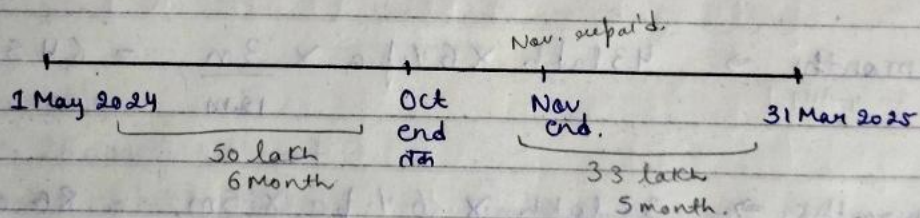 Nov. repaid.
1 May 2024
Oct
end
तक
Nov
end.
31 Mar 2025
50 lakh
6 Month
33 lakh
5 month.